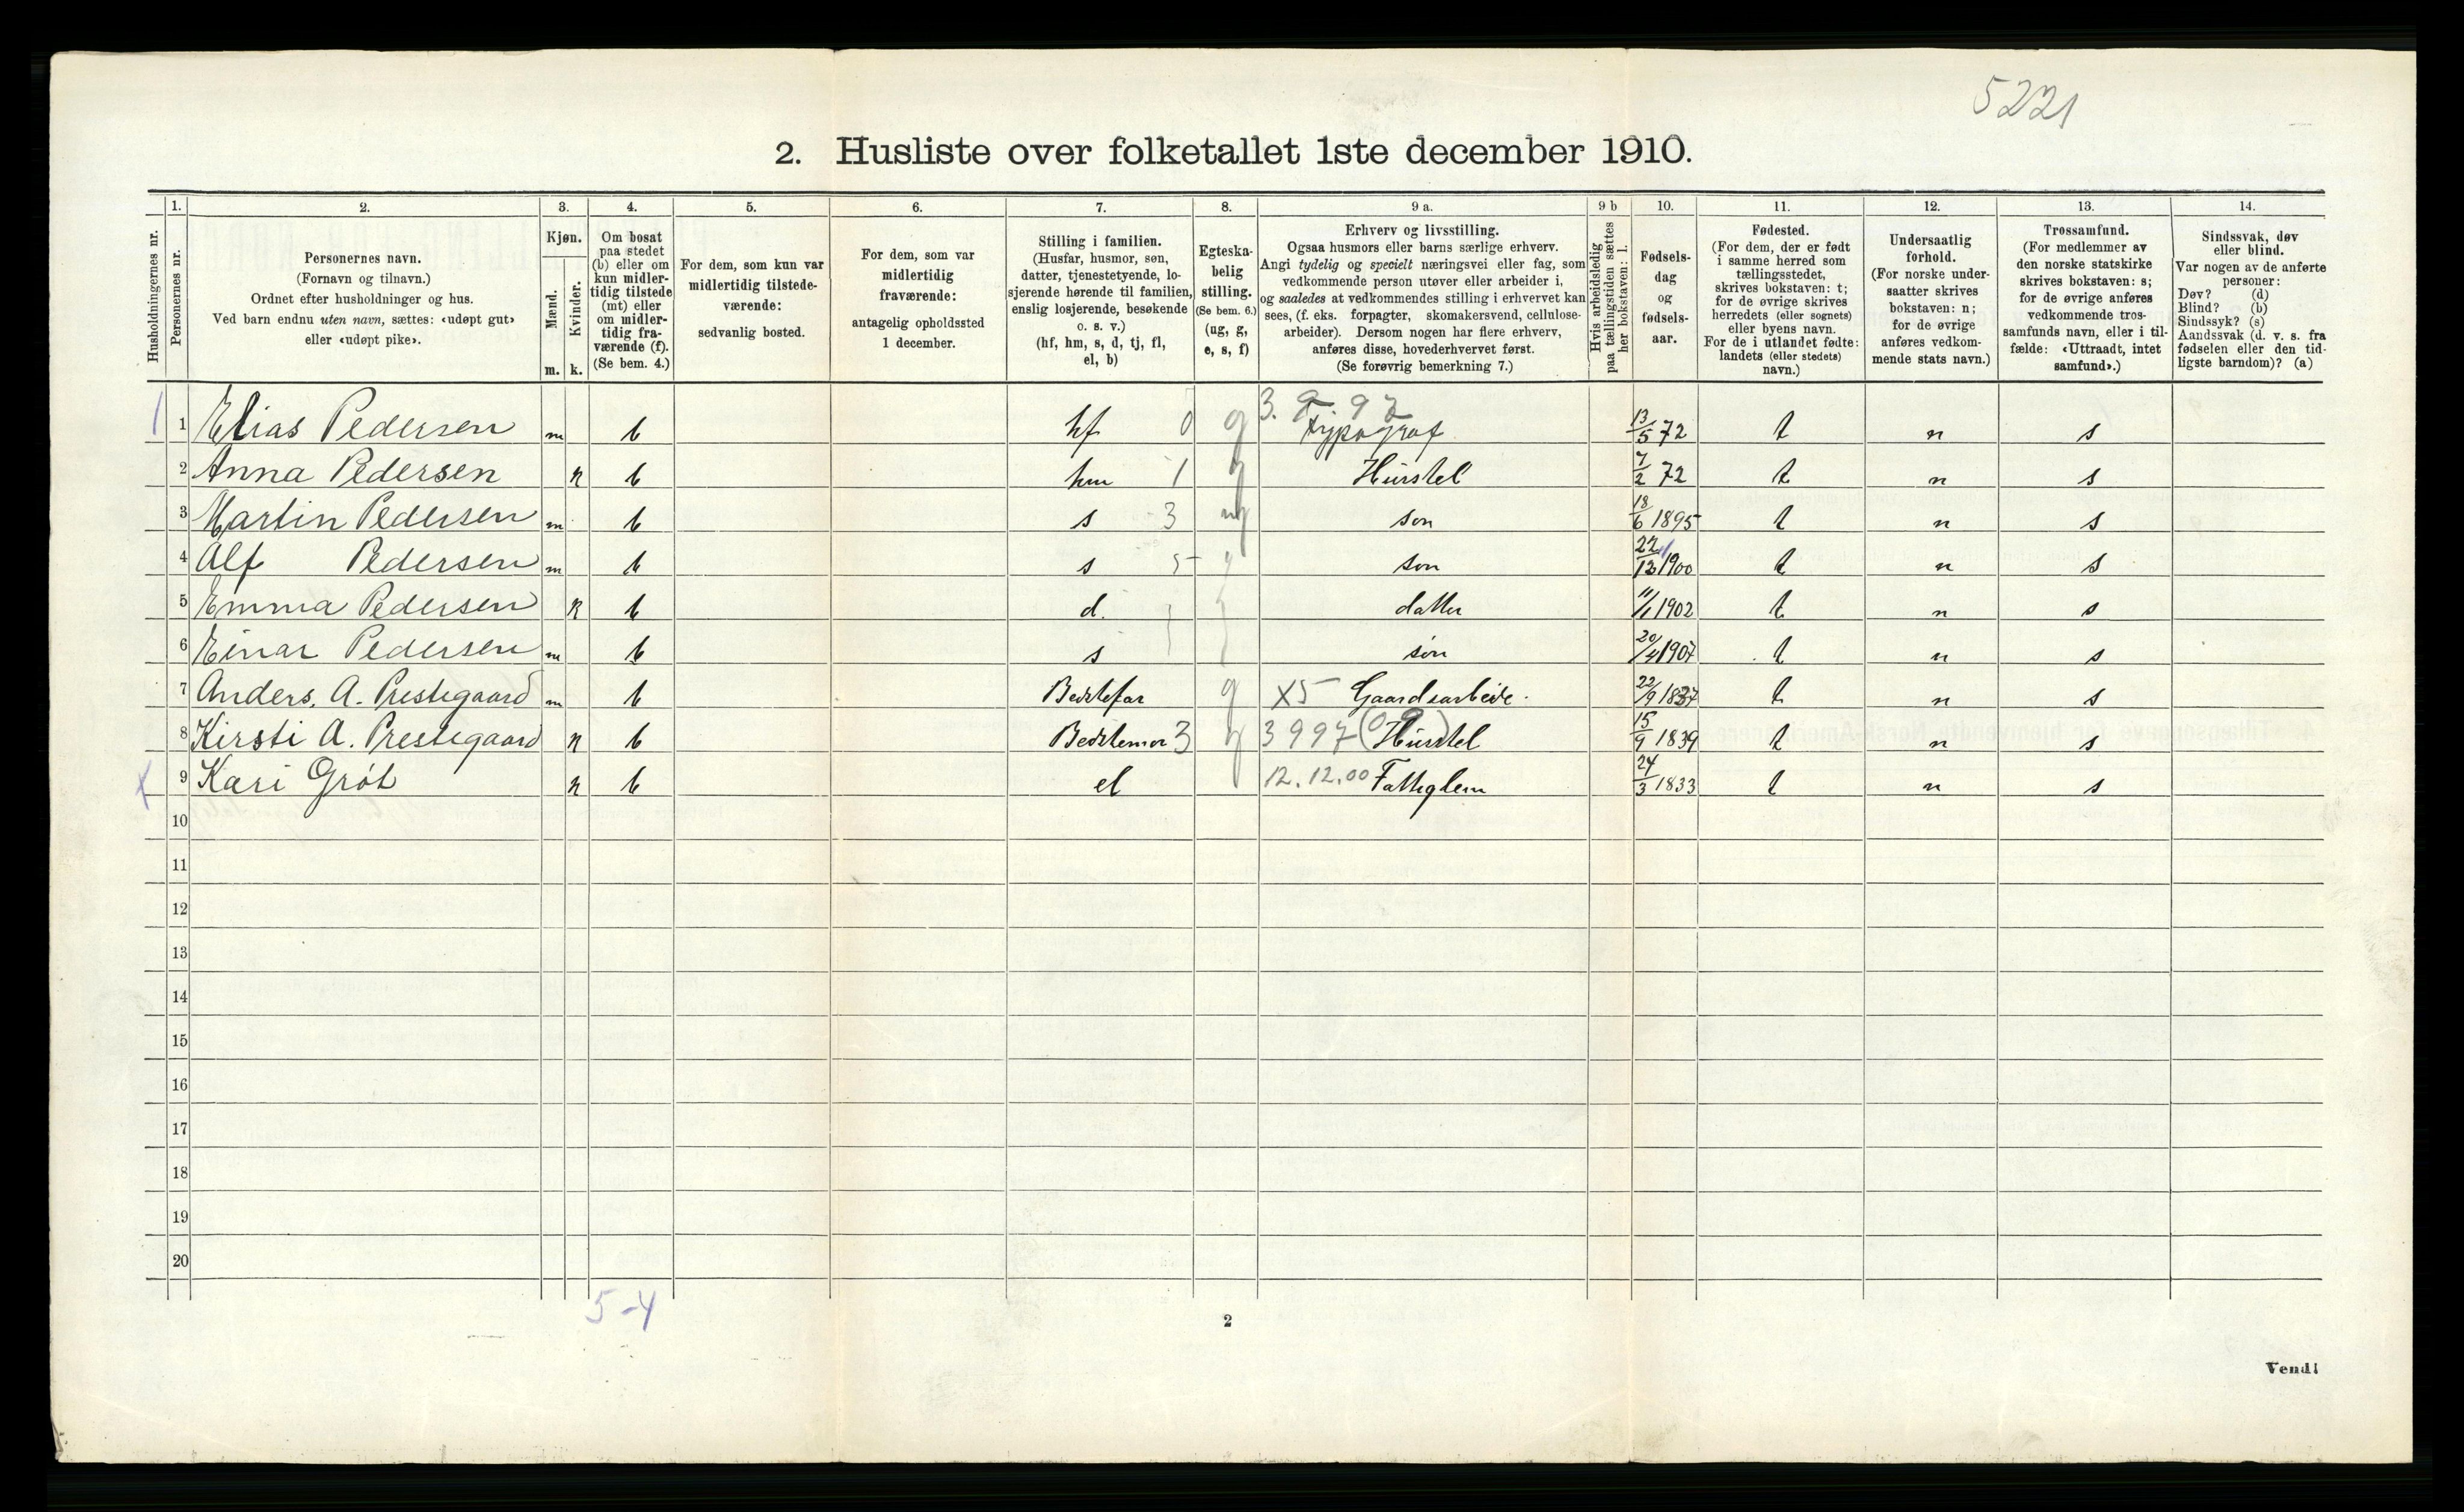 5221
2. Husliste over folketallet 1ste december 1910.
Husholdningernes nr.
1.
Personernes nr.
2.
Personernes navn.
(Fornavn og tilnavn.)
Ordnet efter husholdninger og hus.
Ved barn endnu uten navn, sættes: «udøpt gut»
eller «udøpt pike».
3.
Kjøn.
Mænd.
Kvinder.
m. k.
4.
Om bosat
paa stedet
(b) eller om
kun midler-
tidig tilstede
(mt) eller
om midler-
tidig fra-
værende (f).
(Se bem. 4.)
5.
For dem, som kun var
midlertidig tilstede-
værende:
sedvanlig bosted.
6.
For dem, som var
midlertidig
fraværende:
antagelig opholdssted
1 december.
7.
Stilling i familien.
(Husfar, husmor, søn,
datter, tjenestetyende, lo-
sjerende hørende til familien,
enslig losjerende, besøkende
o. s. v.)
(hf, hm, s, d, tj, fl,
el, b)
8.
Egteska-
belig
stilling.
(Se bem. 6.)
(ug, g,
e, s, f)
9 a.
Erhverv og livsstilling.
Ogsaa husmors eller barns særlige erhverv.
Angi tydelig og specielt næringsvei eller fag, som
vedkommende person utøver eller arbeider i,
og saaledes at vedkommendes stilling i erhvervet kan
sees, (f. eks. forpagter, skomakersvend, cellulose-
arbeider). Dersom nogen har flere erhverv,
anføres disse, hovederhvervet først.
(Se forøvrig bemerkning 7.)
9 b
Hvis arbeidsledig
paa tællingstiden sættes
her bokstaven: l.
10.
Fødsels-
dag
og
fødsels-
aar.
11.
Fødested.
(For dem, der er født
i samme herred som
tællingsstedet,
skrives bokstaven: t;
for de øvrige skrives
herredets (eller sognets)
eller byens navn.
For de i utlandet fødte:
landets (eller stedets)
navn.)
12.
Undersaatlig
forhold.
(For norske under-
saatter skrives
bokstaven: n;
for de øvrige
anføres vedkom-
mende stats navn.)
13.
Trossamfund.
(For medlemmer av
den norske statskirke
skrives bokstaven: s;
for de øvrige anføres
vedkommende tros-
samfunds navn, eller i til-
fælde: «Uttraadt, intet
samfund».)
14.
Sindssvak, døv
eller blind.
Var nogen av de anførte
personer:
Døv? (d)
Blind? (b)
Sindssyk? (s)
Aandssvak (d. v. s. fra
fødselen eller den tid-
ligste barndom)? (a)
1 1 Elias Pedersen m b hf 0 g 3. 9 97 Typograf 13/5 72 t n s
2 Anna Pedersen k b hm 1 g Hurstel 7/2 72 t n s
3 Martin Pedersen m b s 3 ug søn 18/6 1895 t n s
4 Alf Pedersen m b s 5 søn 22/12 1900 t n s
5 Emma Pedersen k b d. datter 11/1 1902 t n s
6 Einar Pedersen m b s søn 20/4 1907 t n s
7 Anders. A. Prestegaard m b Bedstefar g X5 Gaardsarbeide 22/9 1837 t n s
8 Kirsti A. Prestegaard k b Bedstemor 3 g 3997 (09) Hurstel 15/9 1839 t n s
X 9 Kari Gröt k b el 12.12.00 Fattiglem 24/3 1833 t n s
10
11
12
13
14
15
16
17
18
19
20
5-4
2
Vend!